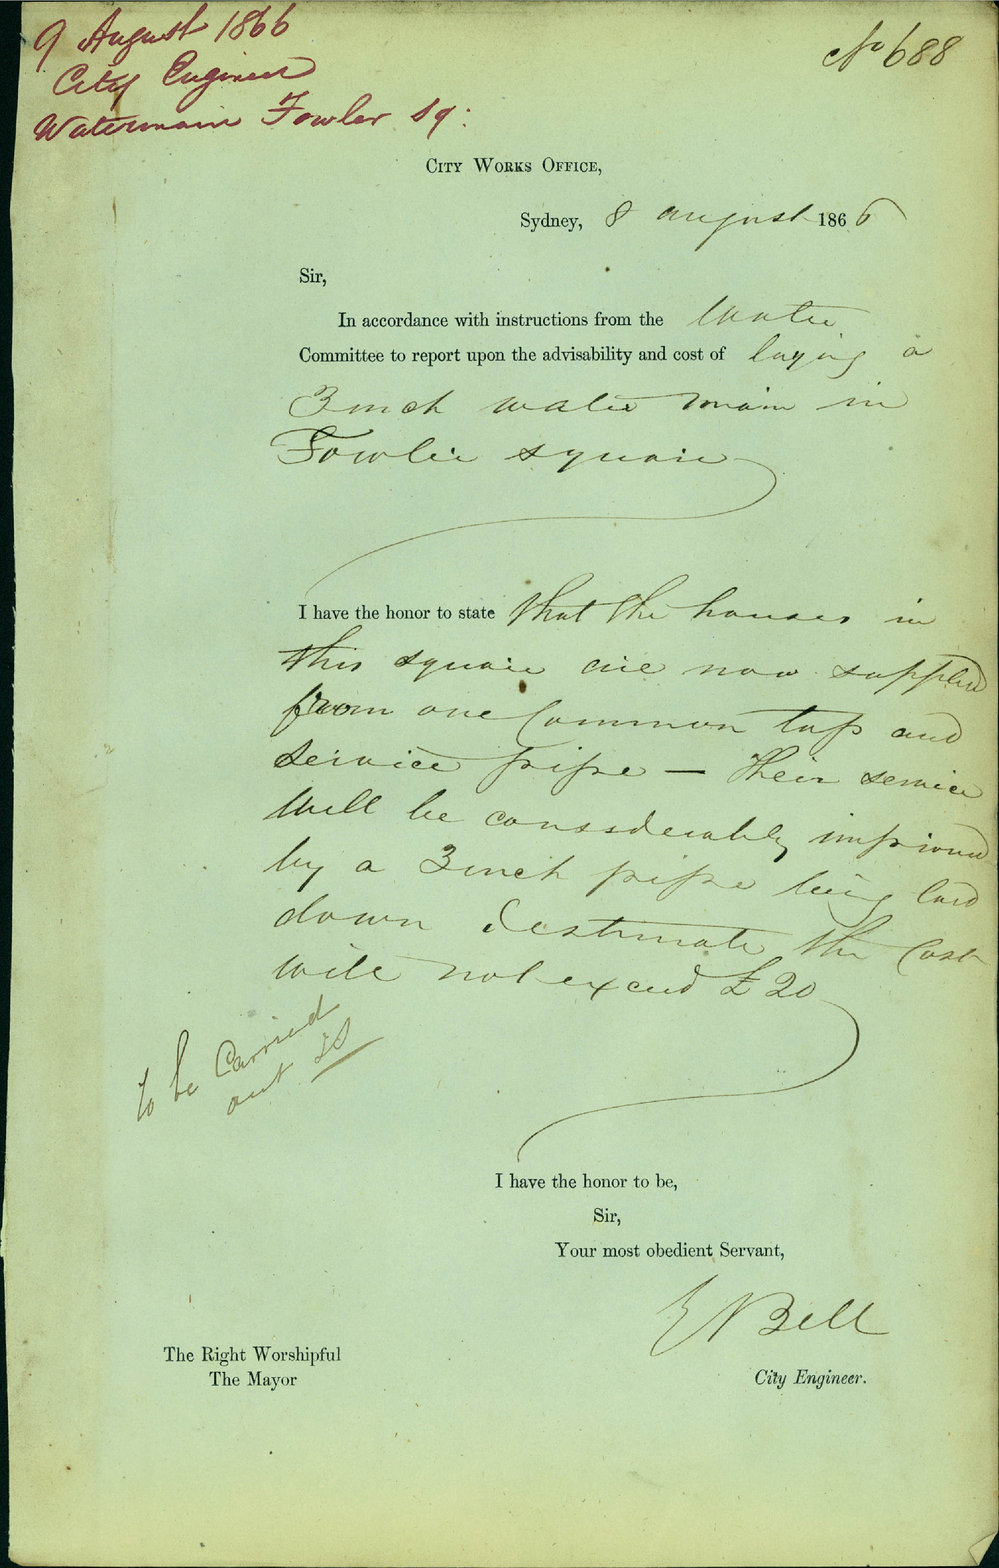 9 August 1866
City Engineer
Watermain Fowler Sq:
No 688
CITY WORKS OFFICE,
Sydney, 8 August 1866
Sir,
In accordance with instructions from the Water
Committee to report upon the advisability and cost of laying a
3 inch water main in
Fowler square
I have the honor to state that the houses in
this square are now supplied
from one Common tap and
service pipe — Their service
will be considerably improved
by a 3 inch pipe being laid
down I estimate the Cost
will not exceed £20
to be Carried
out
I have the honor to be,
Sir,
Your most obedient Servant,
E Bell
City Engineer.
The Right Worshipful
The Mayor